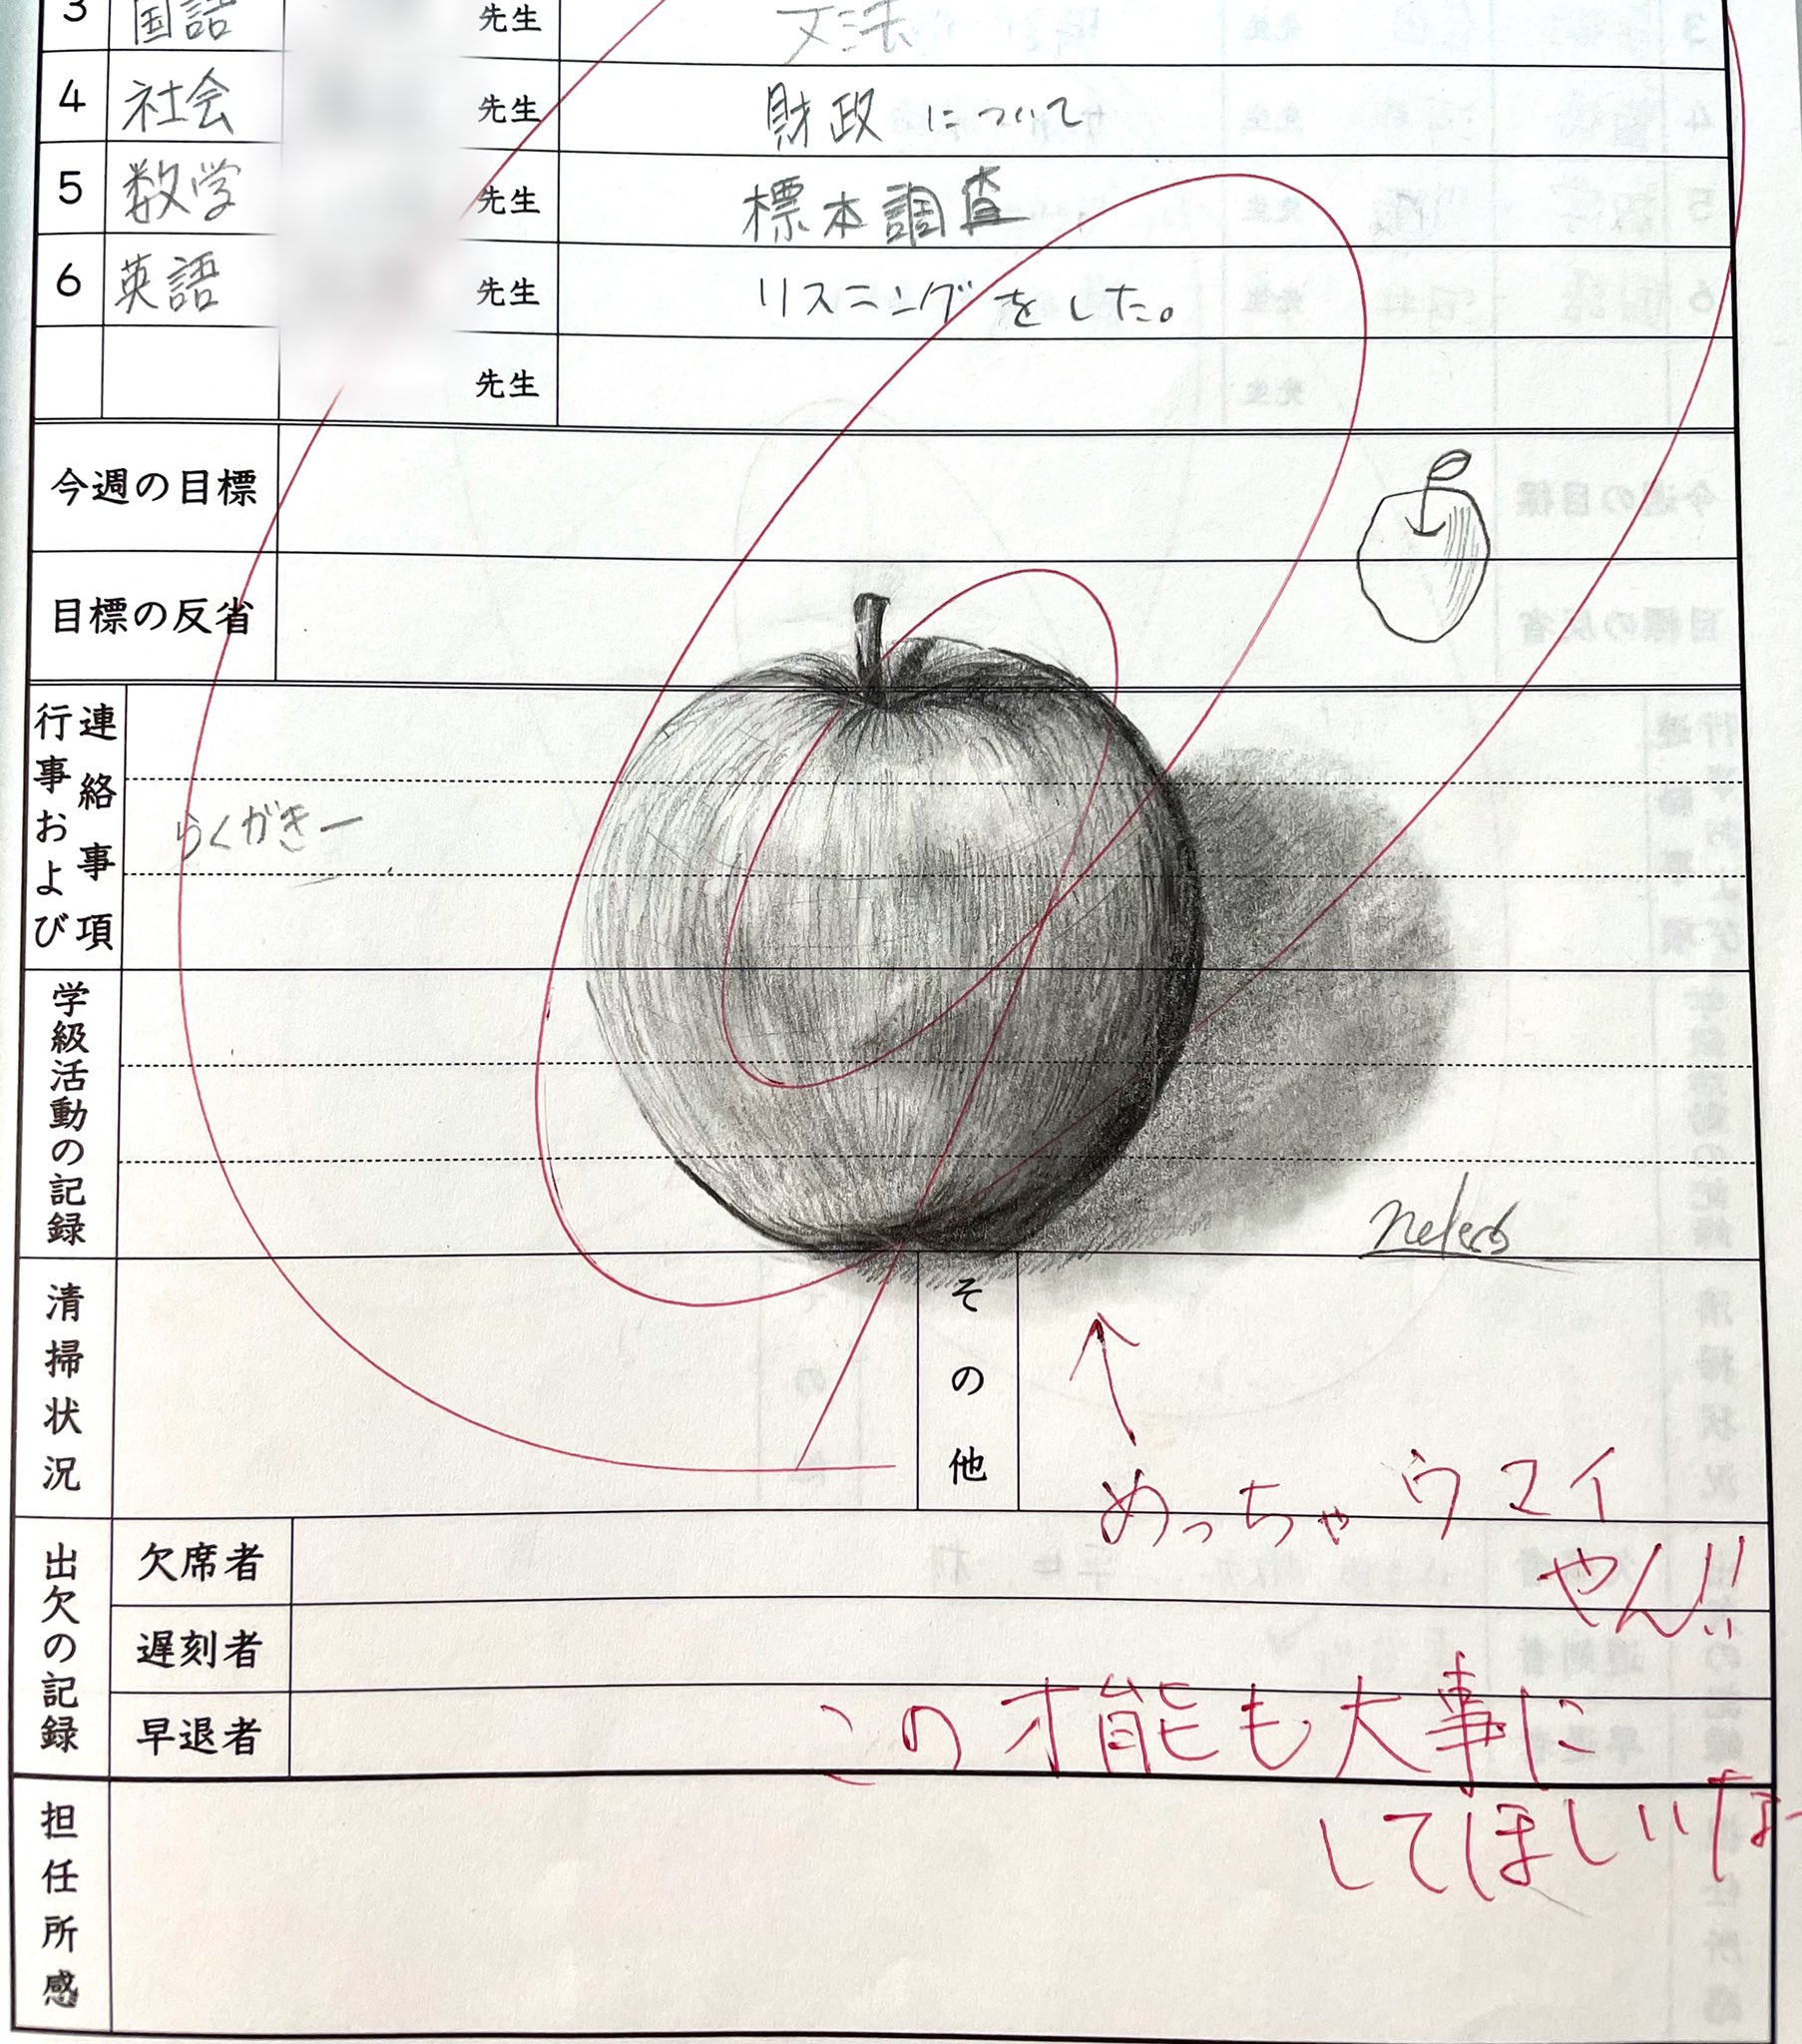 3 国語 先生 文法
4 社会 先生 財政について
5 数学 先生 標本調査
6 英語 先生 リスニングをした。
先生
今週の目標
目標の反省
行事および連絡事項
らくがきー
学級活動の記録
清掃状況
その他
めっちゃウマイ
やん!!
出欠の記録
欠席者
遅刻者
早退者
この才能も大事に
してほしいなー
担任所感